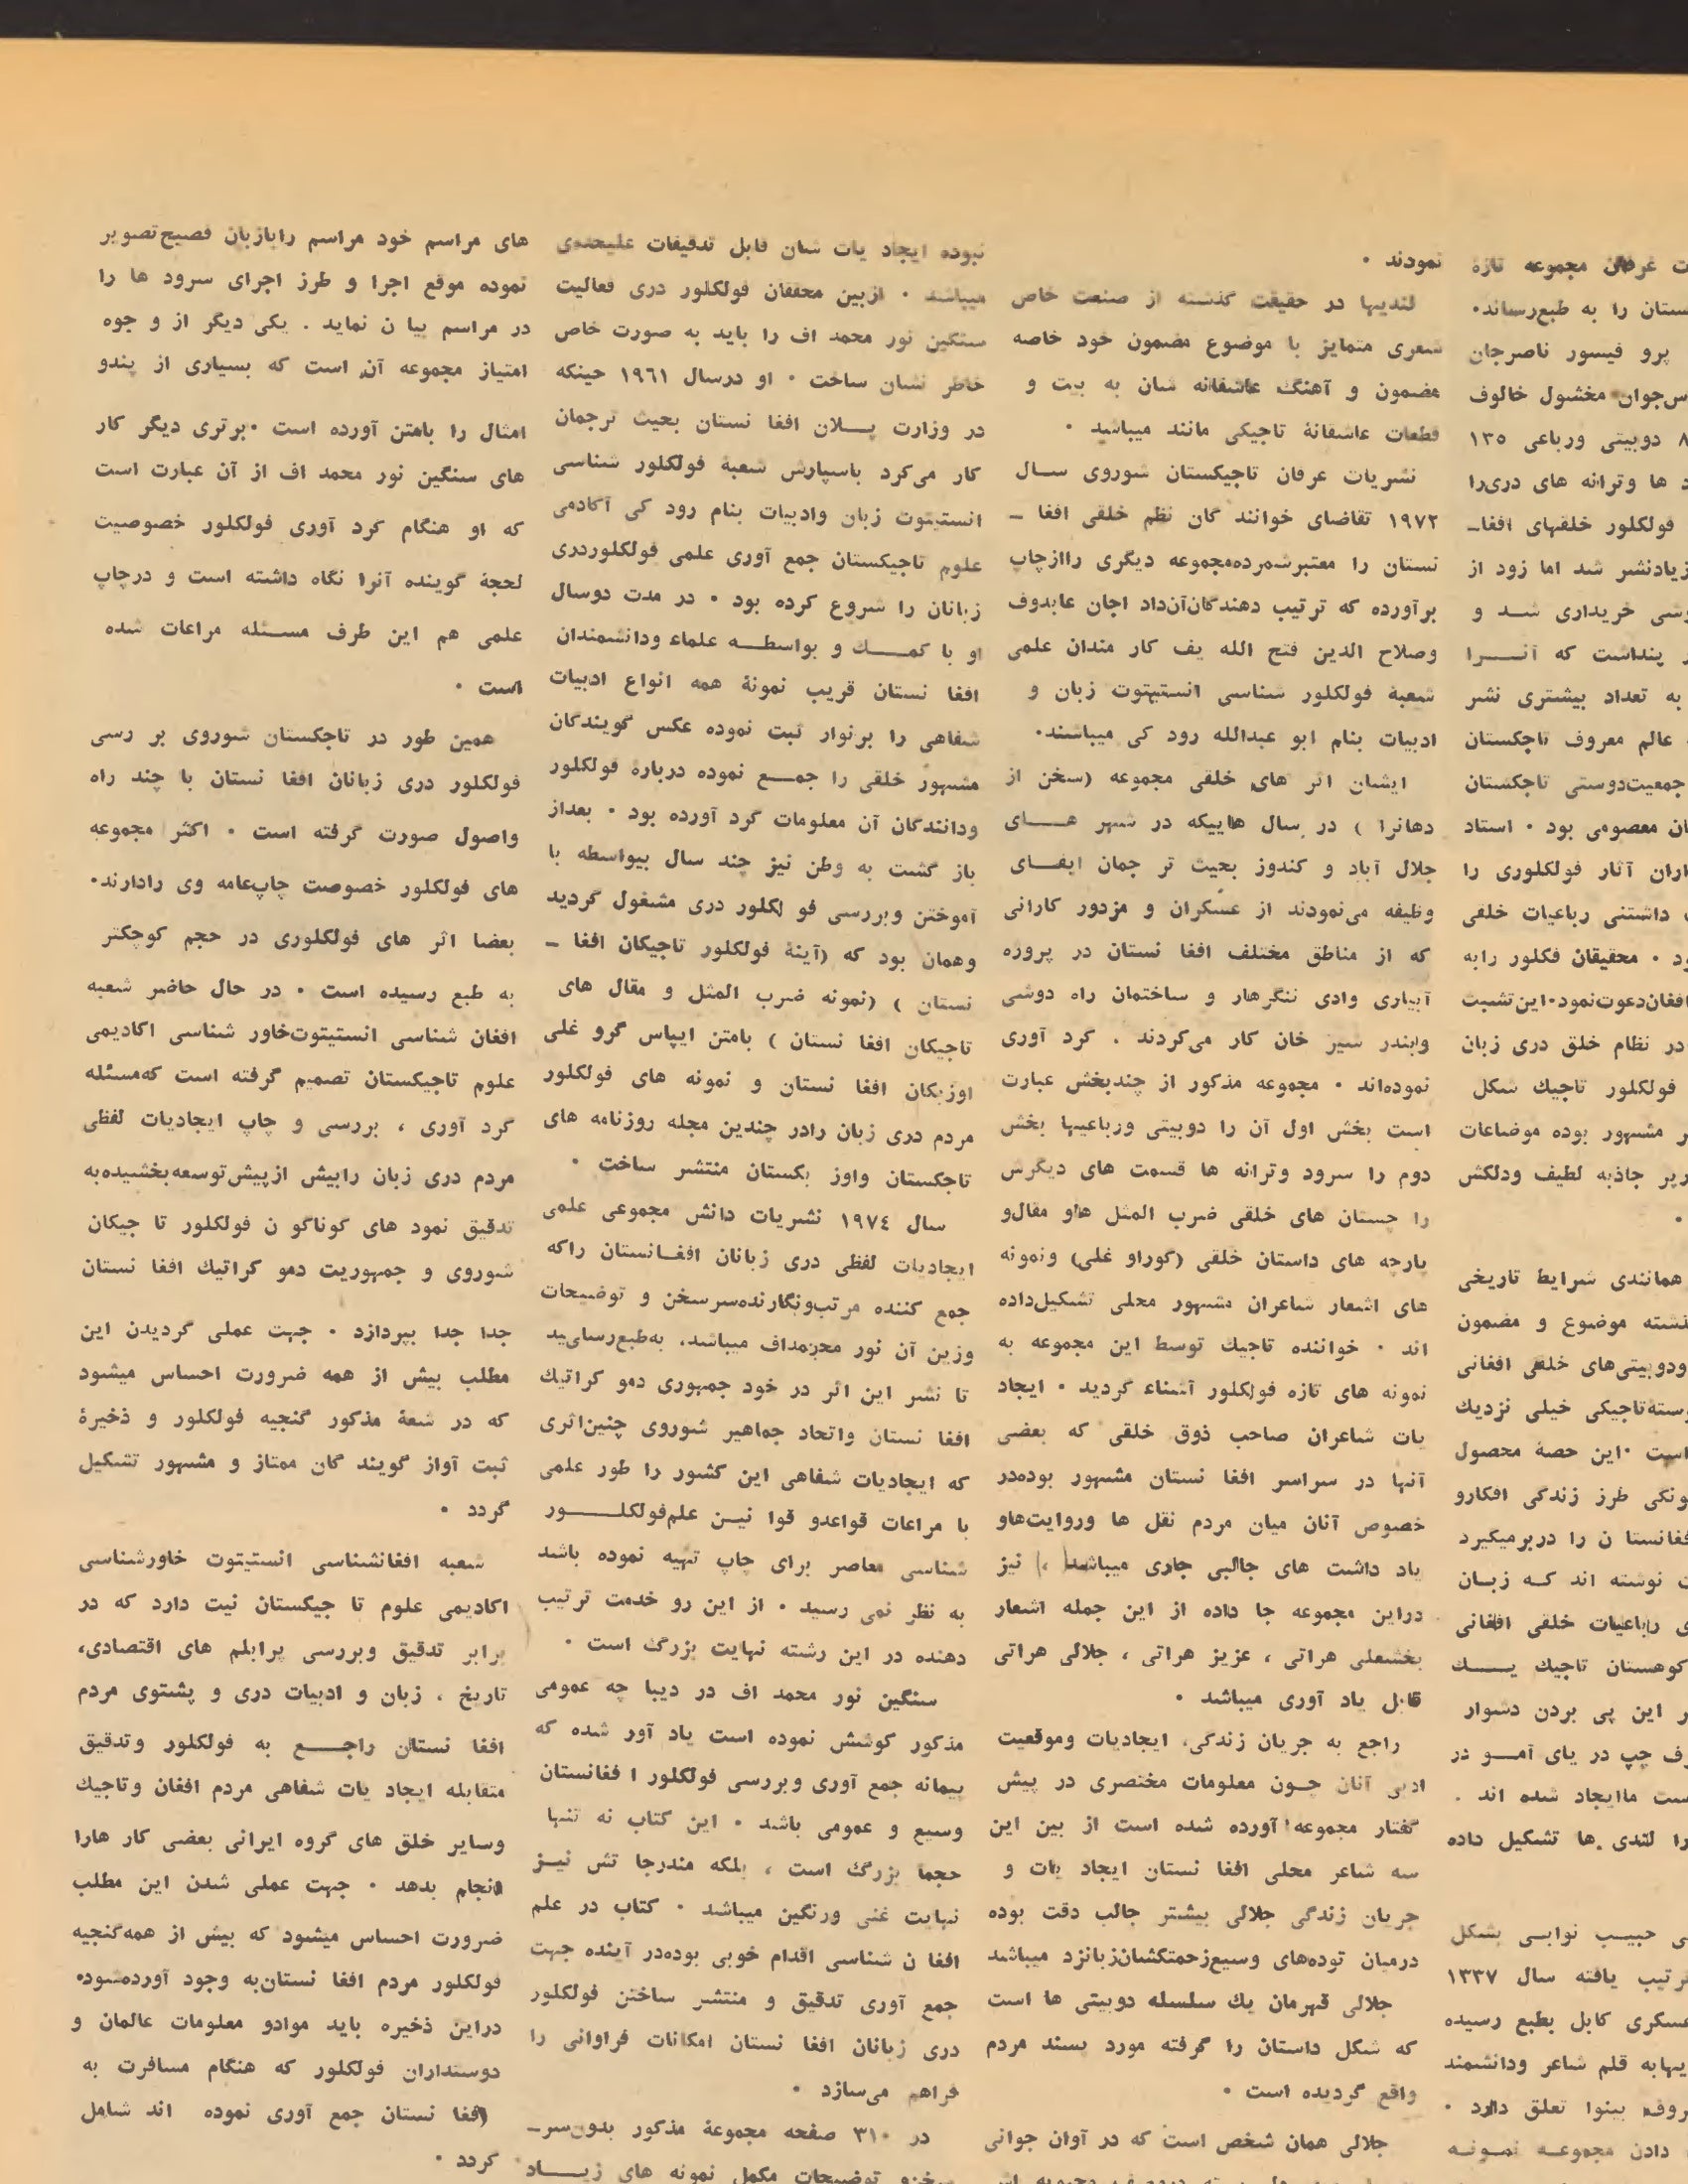 ت عرفان مجموعه تازۀ
ستان را به طبع‌رساند.
پرو فیسور ناصرجان
س‌جوان مخشول خالوف
۸ دوبیتی ورباعی ۱۳۵
د ها وترانه های دری‌را
فولکلور خلقهای افغا-
زیادنشر شد اما زود از
وشی خریداری شد و
پنداشت که آنرا
به تعداد بیشتری نشر
عالم معروف تاجکستان
جمعیت‌دوستی تاجکستان
ان معصومی بود . استاد
اران آثار فولکلوری را
داشتنی رباعیات خلقی
ود . محقیقان فکلور رابه
افغان‌دعوت‌نمود.این‌تشبث
در نظام خلق دری زبان
فولکلور تاجیك شکل
ر مشهور بوده موضاعات
رپر جاذبه لطیف ودلکش
.
همانندی شرایط تاریخی
شته موضوع و مضمون
ودوبیتی‌های خلقی افغانی
وستۀتاجیکی خیلی نزدیك
است .این حصۀ محصول
ونگی طرز زندگی افکارو
فغانستا ن را دربرمیگیرد
نوشته اند که زبان
ی رباعیات خلقی افغانی
کوهستان تاجیك یك
ر این پی بردن دشوار
رف چپ در یای آمو در
ست ماایجاد شده اند .
را لندی ها تشکیل داده
ی حبیب نوابی بشکل
رتیب یافته سال ۱۳۳۷
عسکری کابل بطبع رسیده
یهابه قلم شاعر ودانشمند
روف بینوا تعلق دارد .
دادن مجموعه نمونه
نمودند .
لندیها در حقیقت گذشته از صنعت خاص
شعری متمایز با موضوع مضمون خود خاصه
مضمون و آهنگ عاشقانه شان به بیت و
قطعات عاشقانۀ تاجیکی مانند میباشد .
نشریات عرفان تاجیکستان شوروی سال
۱۹۷۲ تقاضای خوانند گان نظم خلقی افغا -
نستان را معتبرشمرده‌مجموعه دیگری رااز‌چاپ
برآورده که ترتیب دهندگان‌آن‌داد اجان عابدوف
وصلاح الدین فتح الله یف کار مندان علمی
شعبۀ فولکلور شناسی انستیتوت زبان و
ادبیات بنام ابو عبدالله رود کی میباشند.
ایشان اثر های خلقی مجموعه (سخن از
دهانرا ) در سال هاییکه در شهر های
جلال آباد و کندوز بحیث تر جمان ایفای
وظیفه می‌نمودند از عسکران و مزدور کارانی
که از مناطق مختلف افغا نستان در پروره
آبیاری وادی ننگرهار و ساختمان راه دوشی
وبندر شیر خان کار می‌کردند . گرد آوری
نموده‌اند . مجموعه مذکور از چندبخش عبارت
است بخش اول آن را دوبیتی ورباعیها بخش
دوم را سرود وترانه ها قسمت های دیگرش
را چستان های خلقی ضرب المثل هاو مقال‌و
پارچه های داستان خلقی (گوراو غلی) ونمونه
های اشعار شاعران مشهور محلی تشکیل‌داده
اند . خواننده تاجیك توسط این مجموعه به
نمونه های تازه فولکلور آشناء گردید . ایجاد
یات شاعران صاحب ذوق خلقی که بعضی
آنها در سراسر افغا نستان مشهور بوده‌در
خصوص آنان میان مردم نقل ها وروایت‌هاو
یاد داشت های جالبی جاری میباشد ، نیز
دراین مجموعه جا داده از این جمله اشعار
بخشعلی هراتی ، عزیز هراتی ، جلالی هراتی
قابل یاد آوری میباشد .
راجع به جریان زندگی، ایجادیات وموقعیت
ادبی آنان چون معلومات مختصری در پیش
گفتار مجموعه آورده شده است از بین این
سه شاعر محلی افغا نستان ایجاد یات و
جریان زندگی جلالی بیشتر جالب دقت بوده
درمیان توده‌های وسیع‌زحمتکشان‌زبانزد میباشد
جلالی قهرمان یك سلسله دوبیتی ها است
که شکل داستان را گرفته مورد پسند مردم
واقع گردیده است .
جلالی همان شخص است که در آوان جوانی
نبوده ایجاد یات شان قابل تدقیقات علیحده‌ی
میباشد . ازبین محققان فولکلور دری فعالیت
سنگین نور محمد اف را باید به صورت خاص
خاطر نشان ساخت . او درسال ۱۹۶۱ حینکه
در وزارت پلان افغا نستان بحیث ترجمان
کار می‌کرد باسپارش شعبۀ فولکلور شناسی
انستیتوت زبان وادبیات بنام رود کی آکادمی
علوم تاجیکستان جمع آوری علمی فولکلوردری
زبانان را شروع کرده بود . در مدت دوسال
او با کمك و بواسطه علماء ودانشمندان
افغا نستان قریب نمونۀ همه انواع ادبیات
شفاهی را برنوار ثبت نموده عکس گویندگان
مشهور خلقی را جمع نموده دربارۀ فولکلور
ودانندگان آن معلومات گرد آورده بود . بعداز
باز گشت به وطن نیز چند سال بیواسطه با
آموختن وبررسی فو لکلور دری مشغول گردید
وهمان بود که (آینۀ فولکلور تاجیکان افغا -
نستان ) (نمونه ضرب المثل و مقال های
تاجیکان افغا نستان ) بامتن ایپاس گرو غلی
اوزبکان افغا نستان و نمونه های فولکلور
مردم دری زبان رادر چندین مجله روزنامه های
تاجکستان واوز بکستان منتشر ساخت .
سال ۱۹۷۴ نشریات دانش مجموعی علمی
ایجادیات لفظی دری زبانان افغانستان راکه
جمع کننده مرتب‌ونگارنده‌سرسخن و توضیحات
وزین آن نور محمداف میباشد. به‌طبع‌رسایید
تا نشر این اثر در خود جمهوری دمو کراتیك
افغا نستان واتحاد جماهیر شوروی چنین‌اثری
که ایجادیات شفاهی این کشور را طور علمی
با مراعات قواعدو قوا نین علم‌فولکلور
شناسی معاصر برای چاپ تهیه نموده باشد
به نظر نمی رسید . از این رو خدمت ترتیب
دهنده در این رشته نهایت بزرگ است .
سنگین نور محمد اف در دیبا چه عمومی
مذکور کوشش نموده است یاد آور شده که
پیمانه جمع آوری وبررسی فولکلور ا فغانستان
وسیع و عمومی باشد . این کتاب نه تنها
حجما بزرگ است ، بلکه مندرجا تش نیز
نهایت غنی ورنگین میباشد . کتاب در علم
افغا ن شناسی اقدام خوبی بوده‌در آینده جهت
جمع آوری تدقیق و منتشر ساختن فولکلور
دری زبانان افغا نستان امکانات فراوانی را
فراهم می‌سازد .
در ۳۱۰ صفحه مجموعۀ مذکور بدون‌سر-
سخنو توضیحات مکمل نمونه های زیاد
های مراسم خود مراسم رابازبان فصیح‌تصویر
نموده موقع اجرا و طرز اجرای سرود ها را
در مراسم بیا ن نماید . یکی دیگر از و جوه
امتیاز مجموعه آن است که بسیاری از پندو
امثال را بامتن آورده است .برتری دیگر کار
های سنگین نور محمد اف از آن عبارت است
که او هنگام گرد آوری فولکلور خصوصیت
لحجۀ گوینده آنرا نگاه داشته است و درچاپ
علمی هم این طرف مسئله مراعات شده
است .
همین طور در تاجکستان شوروی بر رسی
فولکلور دری زبانان افغا نستان با چند راه
واصول صورت گرفته است . اکثر مجموعه
های فولکلور خصوصت چاپ‌عامه وی رادارند.
بعضا اثر های فولکلوری در حجم کوچکتر
به طبع رسیده است . در حال حاضر شعبه
افغان شناسی انستیتوت‌خاور شناسی اکادیمی
علوم تاجیکستان تصمیم گرفته است که‌مسئله
گرد آوری ، بررسی و چاپ ایجادیات لفظی
مردم دری زبان رابیش ازپیش‌توسعه‌بخشیده‌به
تدقیق نمود های گوناگو ن فولکلور تا جیکان
شوروی و جمهوریت دمو کراتیك افغا نستان
جدا جدا بپردازد . جهت عملی گردیدن این
مطلب بیش از همه ضرورت احساس میشود
که در شعۀ مذکور گنجیه فولکلور و ذخیرۀ
ثبت آواز گویند گان ممتاز و مشهور تشکیل
گردد .
شعبه افغانشناسی انستیتوت خاورشناسی
اکادیمی علوم تا جیکستان نیت دارد که در
برابر تدقیق وبررسی پرابلم های اقتصادی،
تاریخ ، زبان و ادبیات دری و پشتوی مردم
افغا نستان راجع به فولکلور وتدقیق
متقابله ایجاد یات شفاهی مردم افغان وتاجیك
وسایر خلق های گروه ایرانی بعضی کار هارا
انجام بدهد . جهت عملی شدن این مطلب
ضرورت احساس میشود که بیش از همه‌گنجیه
فولکلور مردم افغا نستان‌به وجود آورده‌شود.
دراین ذخیره باید موادو معلومات عالمان و
دوستداران فولکلور که هنگام مسافرت به
افغا نستان جمع آوری نموده اند شامل
گردد .